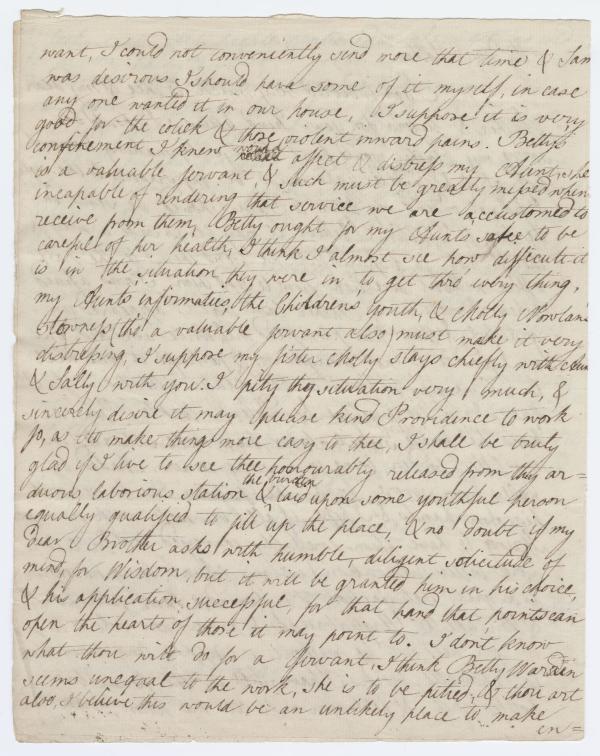 want, I could not conveniently send more that time & Sam
was desirous I should have some of it myself, in case
any one wanted it in our house, I suppose it is very
good for the colick & those violent inward pains. Betty's
confinement I knew would affect & distress my Aunt, she
is a valuable servant & such must be greatly missed when
incapable of rendering that service we are accustomed to
receive from them, Betty ought for my Aunts sake to be
careful of her health, I think I almost see how difficult it
is in the situation they were in to get thro' every thing,
my Aunts infirmaties, the Children's youth, & Molly Nowlan's
slowness (tho' a valuable servant also) must make it very
distressing, I suppose my sister Molly stays chiefly with
& Sally with you. I pity thy situation very much, &
sincerely desire it may please kind Providence to work
so, as to make things more easy to thee, I shall be truly
glad if I live to see thee honourably released from thy ar=
duous laborious station & the burden laid upon some youthful person
equally qualified to fill up the place, & no doubt if my
dear Brother asks with humble, diligent solicitude of
mind, for Wisdom, but it will be granted him in his choice,
& his application successful, for that hand that points can
open the hearts of those it may point to. I don't know
what thou will do for a servant, I think Betty Warden
seems unequal to the work, she is to be pitied, & thou art
also, I believe this would be an unlikely place to make
en=